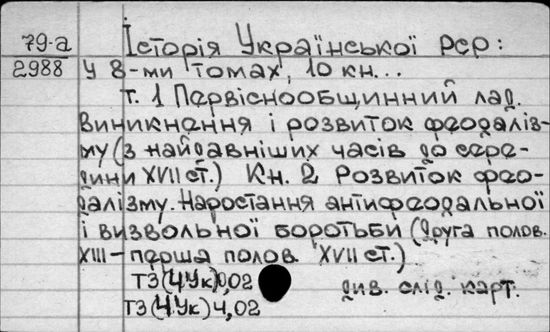 79-а
2988
Історія Української РСР:
У 8-ми томах, 10 кн...
т. 1 Первіснообщинний лад.
Виникнення і розвиток феодаліз-
му (з найдавніших часів до сере-
дини XVII ст.) Кн. 2 Розвиток фео-
далізму. Наростання антифеодальної
і визвольної боротьби (друга полов.
XIII – перша полов. XVII ст.)
Т3(4Ук)0,02
див. слід. карт.
Т3(4Ук)4,02